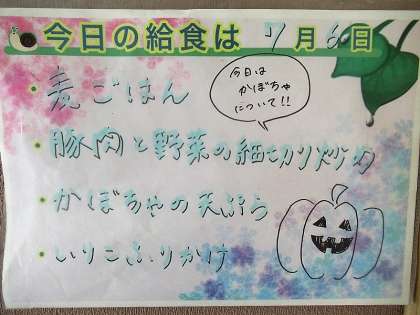 今日の給食は 7月6日
今日は
かぼちゃ
について!!
・麦ごはん
・豚肉と野菜の細切り炒め
・かぼちゃの天ぷら
・いりこふりかけ